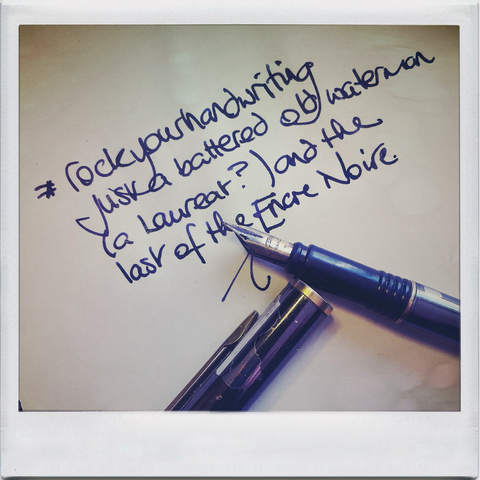 # rockyourhandwriting
Just a battered old waterman
(a Laureat?) and the
last of the Encre Noire.